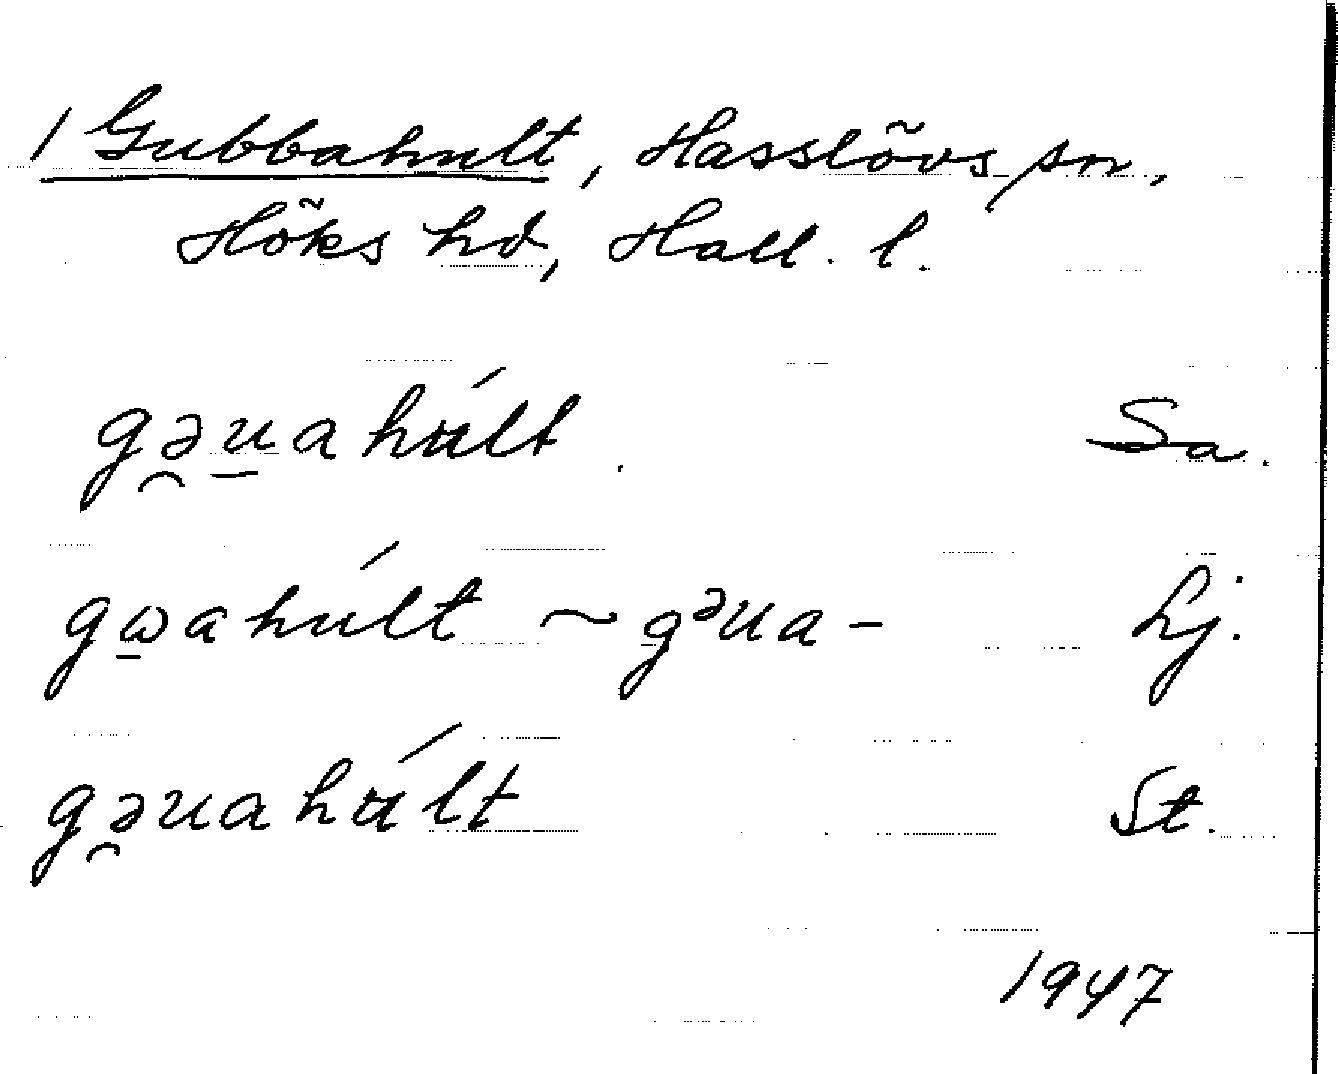 1 Gubbahult, Hasslövs sn,
Höks hd, Hall. l.
gə̯u̠ahúlt. Sa.
gω̠ahúlt ~ gᵊua- Lj.
gə̯uahúlt St.
1947